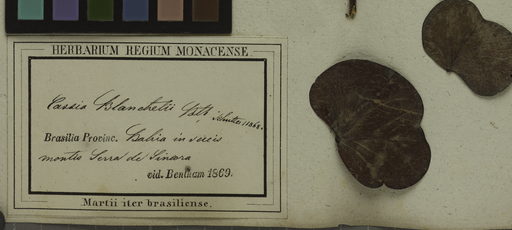 HERBARIUM REGIUM MONACENSE
Cassia Blanchetii Bth
Brasilia Provinc. Bahia in
montis Serra de Sincora
vid. Bentham 1869.
Martii iter brasiliense.